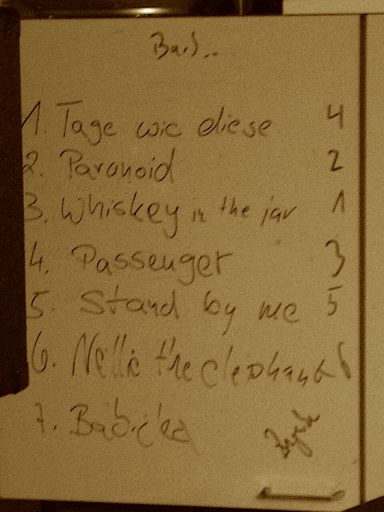 1. Tage wie diese 4
2. Paranoid 2
3. Whiskey in the jar 1
4. Passenger 3
5. Stand by me 5
6. Nellie the elephant 6
7.